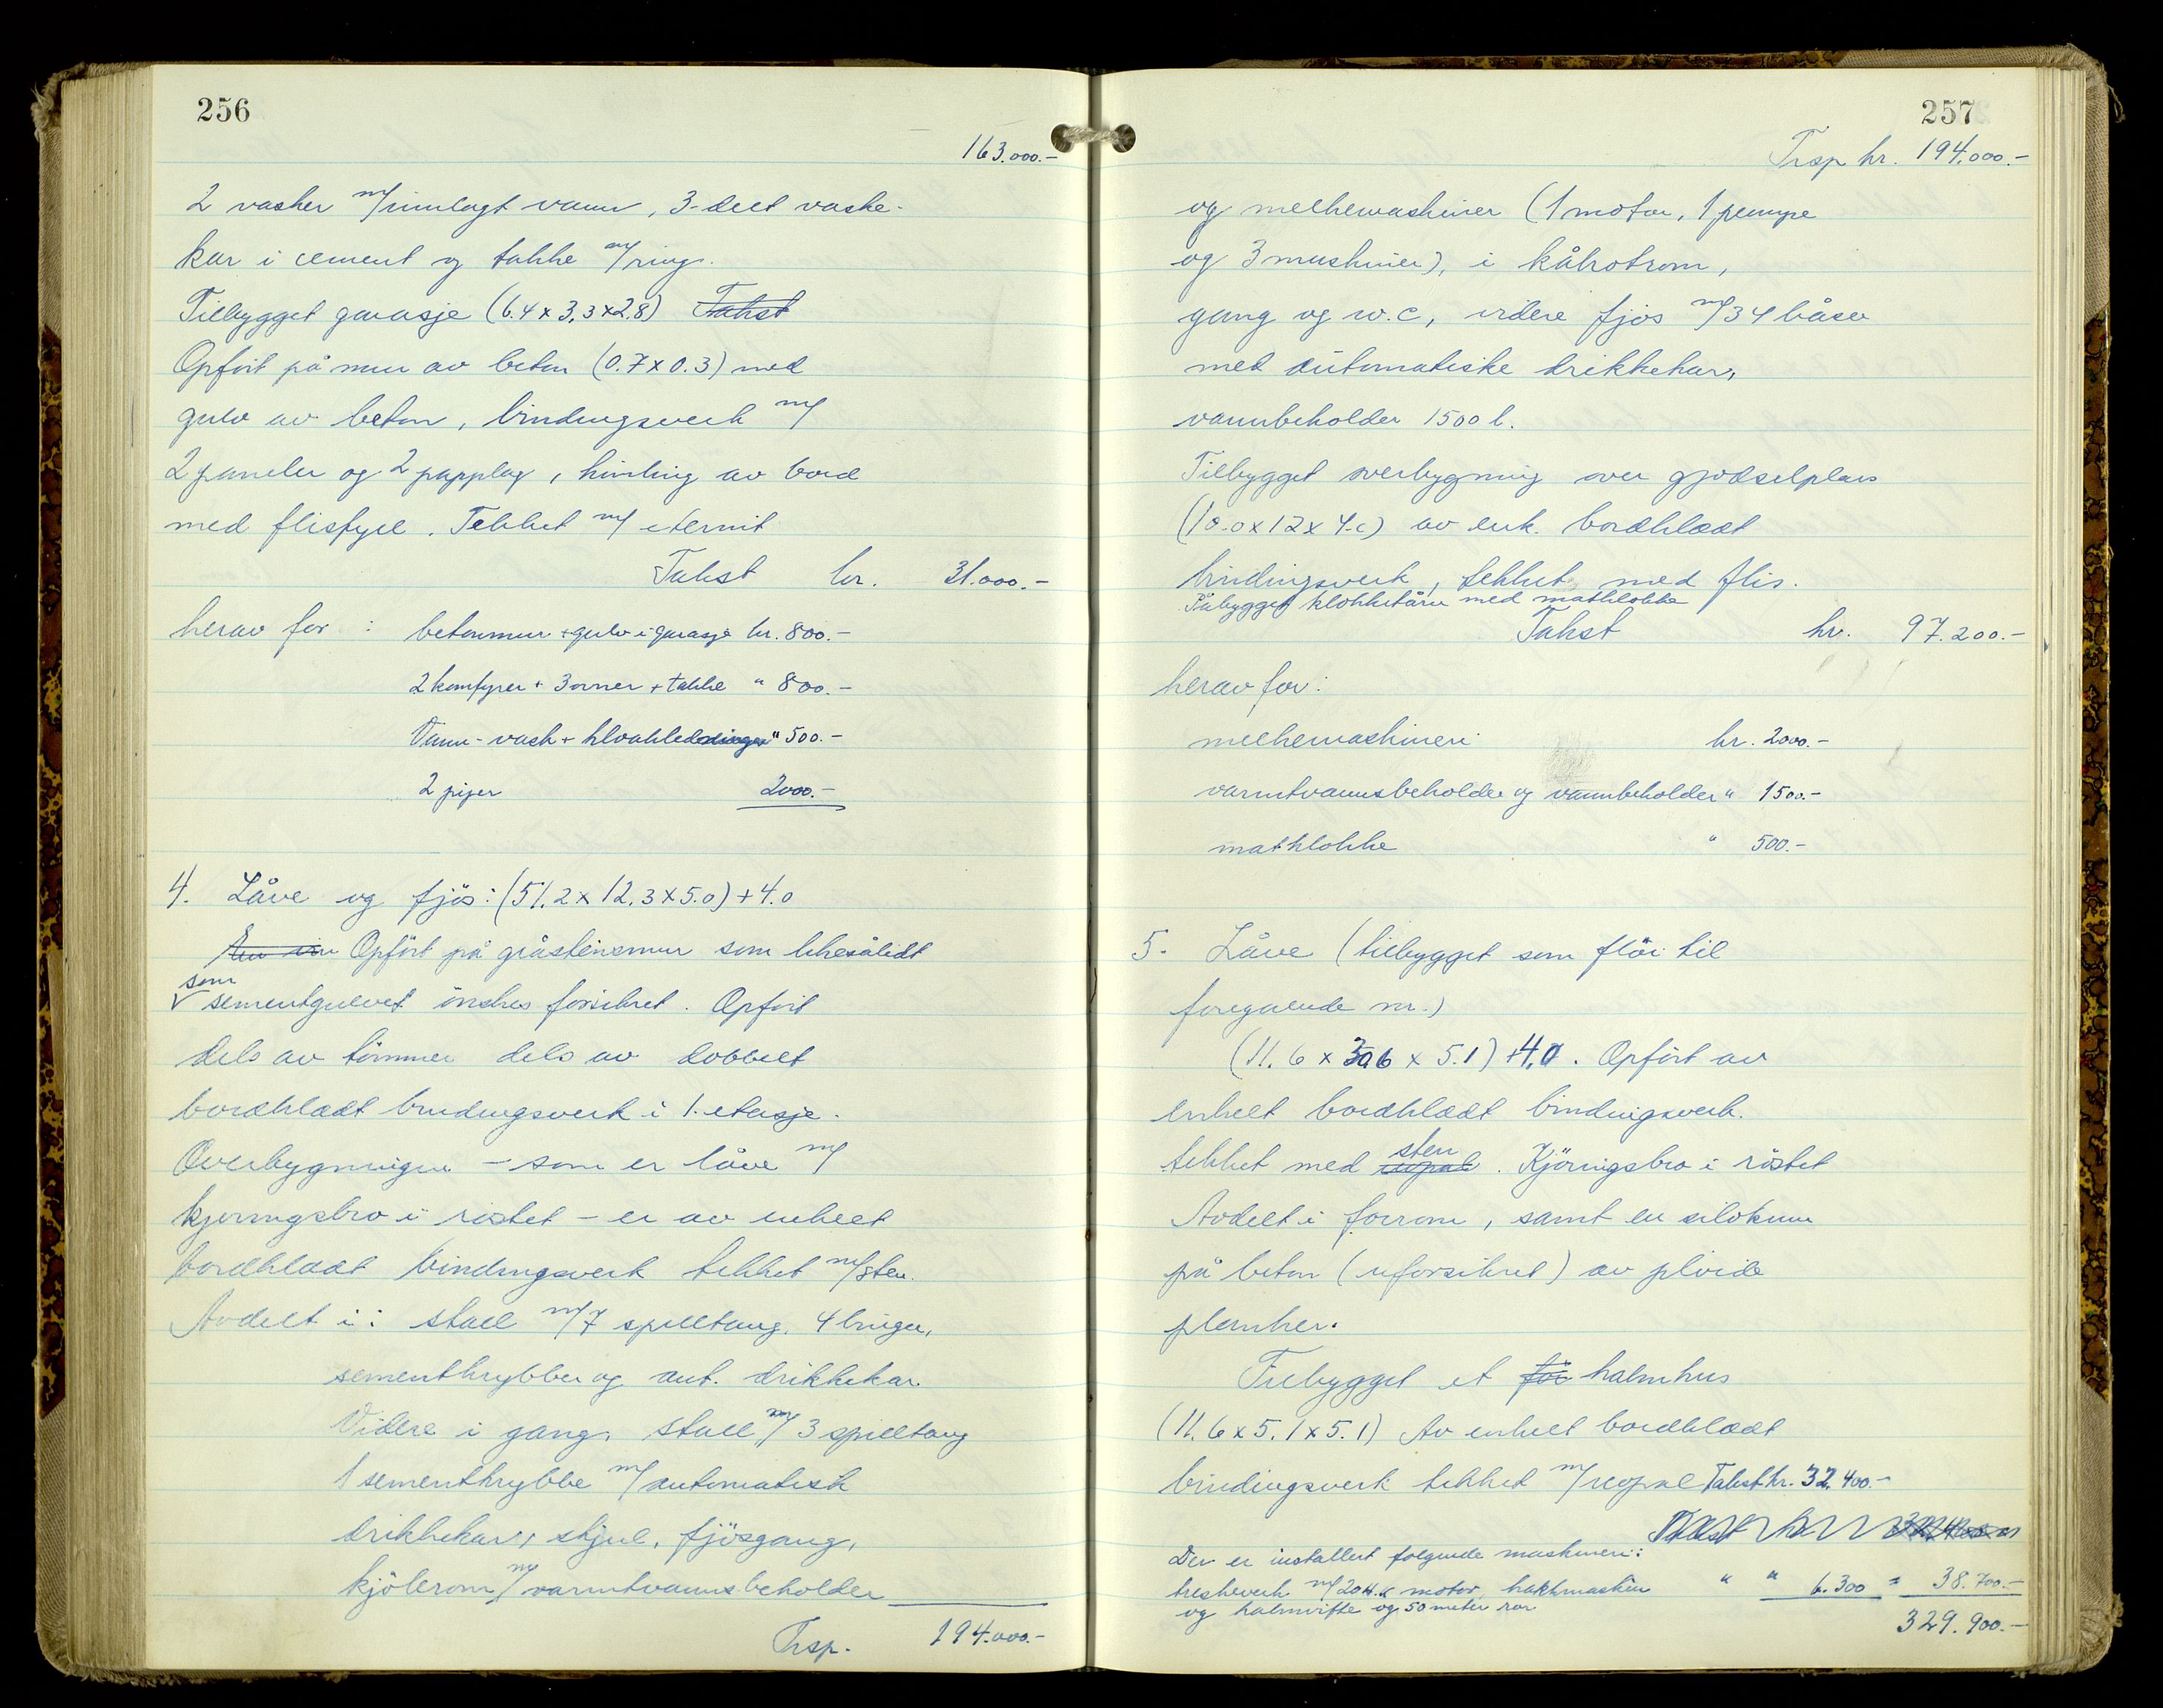 256
163.000.-
2 vasker m/innlagt vann, 3-delt vaske-
kar i cement og takke m/ring.
Tilbygget garasje (6.4 x 3,3 x 2.8) Takst
Opført på mur av beton (0.7 x 0.3) med
gulv av beton, bindingsverk m/
2 paneler og 2 papplag, himling av bord
med flisfyll. Tekket m/ eternit
Takst kr. 31.000.-
herav for : betonmur + gulv i garasje kr. 800.-
2 komfyrer + 3 ovner + takke " 800.-
Vann- vask + kloakkledninger " 500.-
2 piper 2000.-
4. Låve og fjös: (51.2 x 12.3 x 5.0) + 4.0
Opfört på gråstensmur som likesålidt
som
sementgulvet önskes forsikret. Opfört
dels av tömmer dels av dobbelt
bordklædt bindingsverk i 1. etasje.
Overbygningen - som er låve m/
kjøringsbro i røstet - er av enkelt
bordklædt bindingsverk tekket m/sten.
Avdelt i: stall m/7 spilltaug. 4 binger,
sementkrybber og aut. drikkekar
Videre i gang, stall m/ 3 spilltaug
1 sementkrybbe m/ automatisk
drikkekar, skjul, fjösgang,
kjölerom m/ varmtvannsbeholder
Trsp. 194.000.-
257
Trsp kr. 194.000.-
og melkemaskiner (1 motor, 1 pumpe
og 3 maskiner), i kålrotrom,
gang og w.c, videre fjøs m/34 båser
med automatiske drikkekar,
vannbeholder 1500 l.
Tilbygget overbygning over gjødselplass
(10.0 x 12 x 4.0) av enk. bordklædt
bindingsverk, tekket med flis.
Påbygget klokketårn med matklokke
Takst kr. 97.200.-
herav for:
melkemaskineri kr. 2000.-
varmtvannsbeholder og vannbeholder " 1500.-
matklokke " 500.-
5. Låve (tilbygget som flöi til
foregående nr.)
(11.6 x 30.6 x 5.1) + 4.0. Opfört av
enkelt bordklædt bindingsverk.
sten
tekket med . Kjöringsbro i röstet
Avdelt i forrom, samt en silokum
på beton (uforsikret) av pløide
planker.
Tilbygget et för halmhus
(11.6 x 5.1 x 5.1) Av enkelt bordklædt
bindingsverk tekket m/ropal Takst kr. 32.400.-
Takst
Der er installert følgende maskineri:
treskeverk m/20 H.K motor, hakkmaskin " " 6.300 = 38.700.-
og halmvifte og 50 meter rør
329.900.-